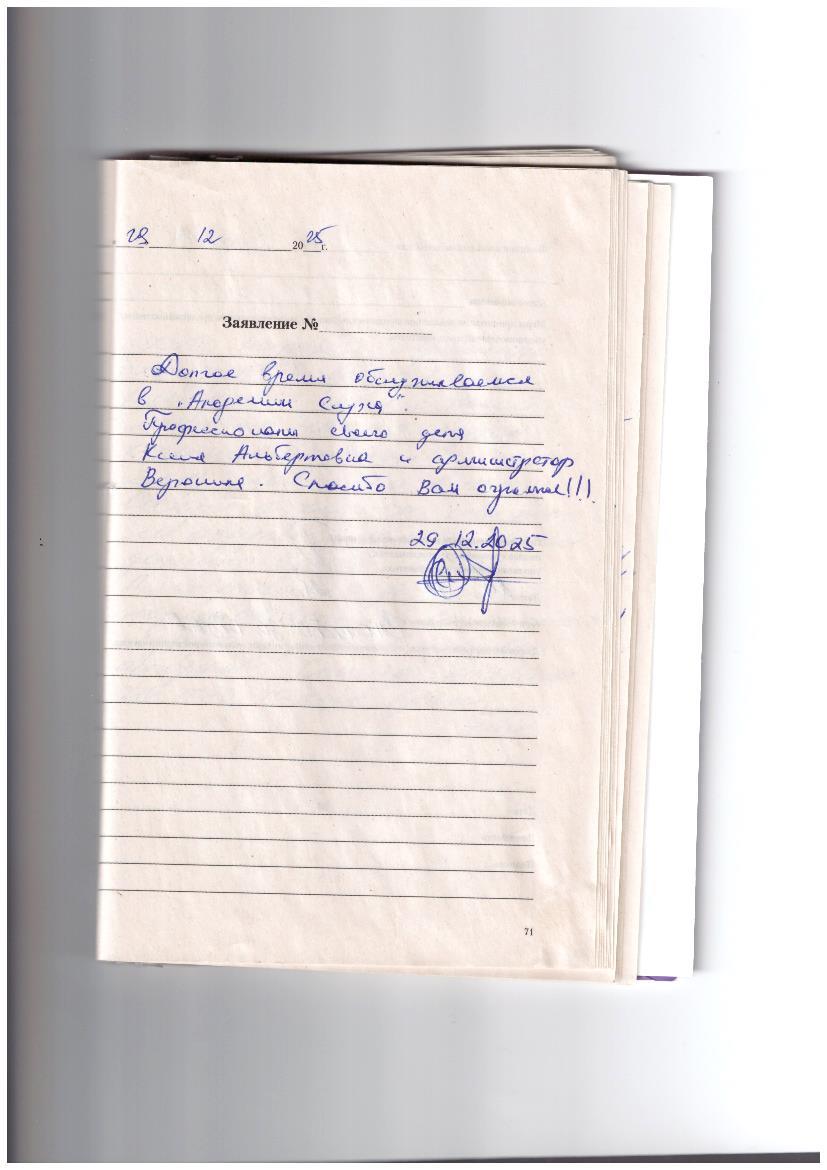 29 12 2025 г.
Заявление №
Долгое время обслуживаемся
в "Академии Слуха".
Профессионалы своего дела
Альбертовна и администратор
Вероника. Спасибо Вам огромное!!!
29.12.2025
71